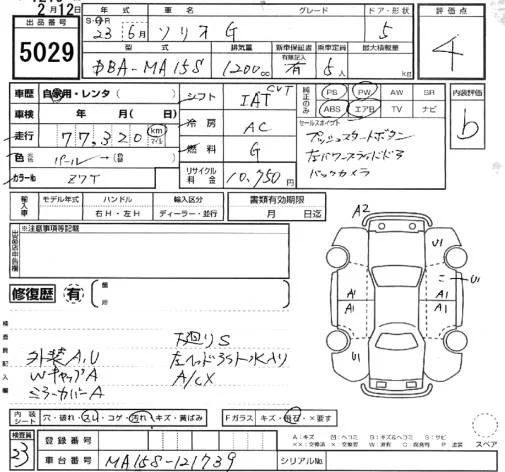 2月12日
出品番号
5029
年式 車名 グレード ドア・形状
S・H
23年6月 ソリオ G 5
型式 排気量 新車保証書 乗車定員 最大積載量
有無記入
DBA-MA15S 1200cc 有 5人 kg
評価点
4
車歴 自家用・レンタ( )
車検 年 月( 日)
走行 77,320 km マイル
色 パール →( )
カラーNo Z7T
シフト IAT CVT
冷房 AC
燃料 G
リサイクル料金 10,950円
純正のみ
PS PW AW SR
ABS エアB TV ナビ
セールスポイント
プッシュスタートボタン
左パワースライドドア
バックカメラ
内装評価
b
輸入車
モデル年式 ハンドル 輸入区分
右H・左H ディーラー・並行
書類有効期限
月 日迄
※注意事項等記載
修復歴 有
箇所
A2
U1
U1
A1 A1
A1 A1
U1
検査員記入欄
下廻りS
外装A,U
左ヘッドライト水入り
WキャップA
A/CX
ミラーカバーA
内装シート 穴・破れ・スレ・コゲ・汚れ・キズ・黄ばみ
Fガラス キズ・飛石・×要す
検査員
33
登録番号
車台番号 MA15S-121739 シリアルNo.
スペア
A:キズ U:ヘコミ B:キズ&ヘコミ S:サビ
××:交換済 ×:要交換 W:波有 C:腐食 P:塗装